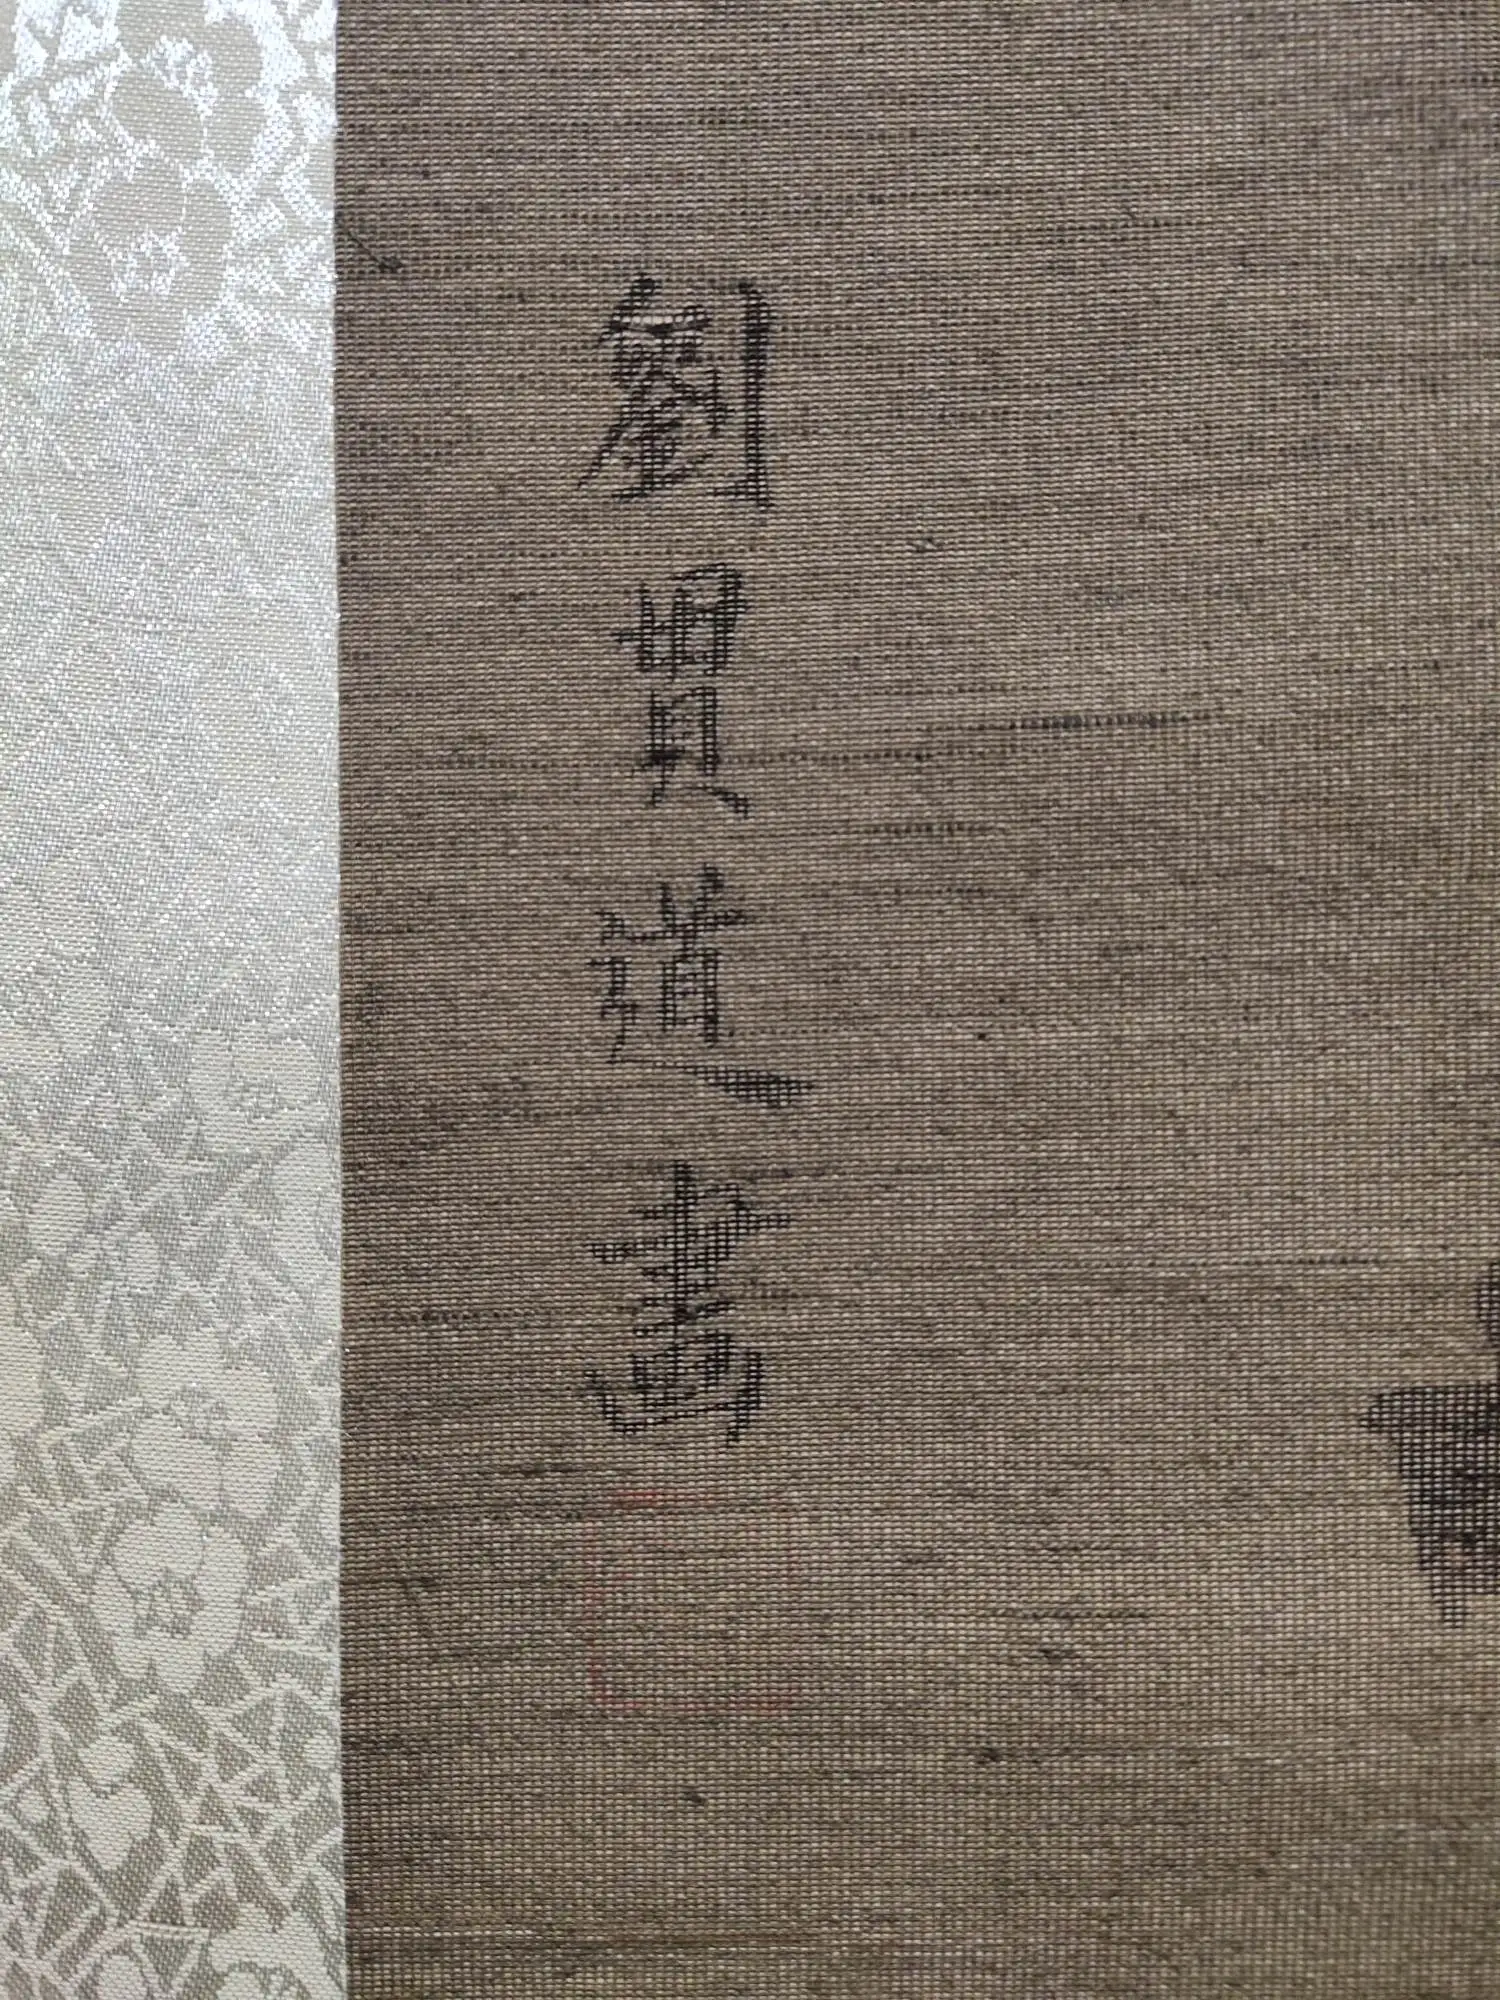 劉貫道畫